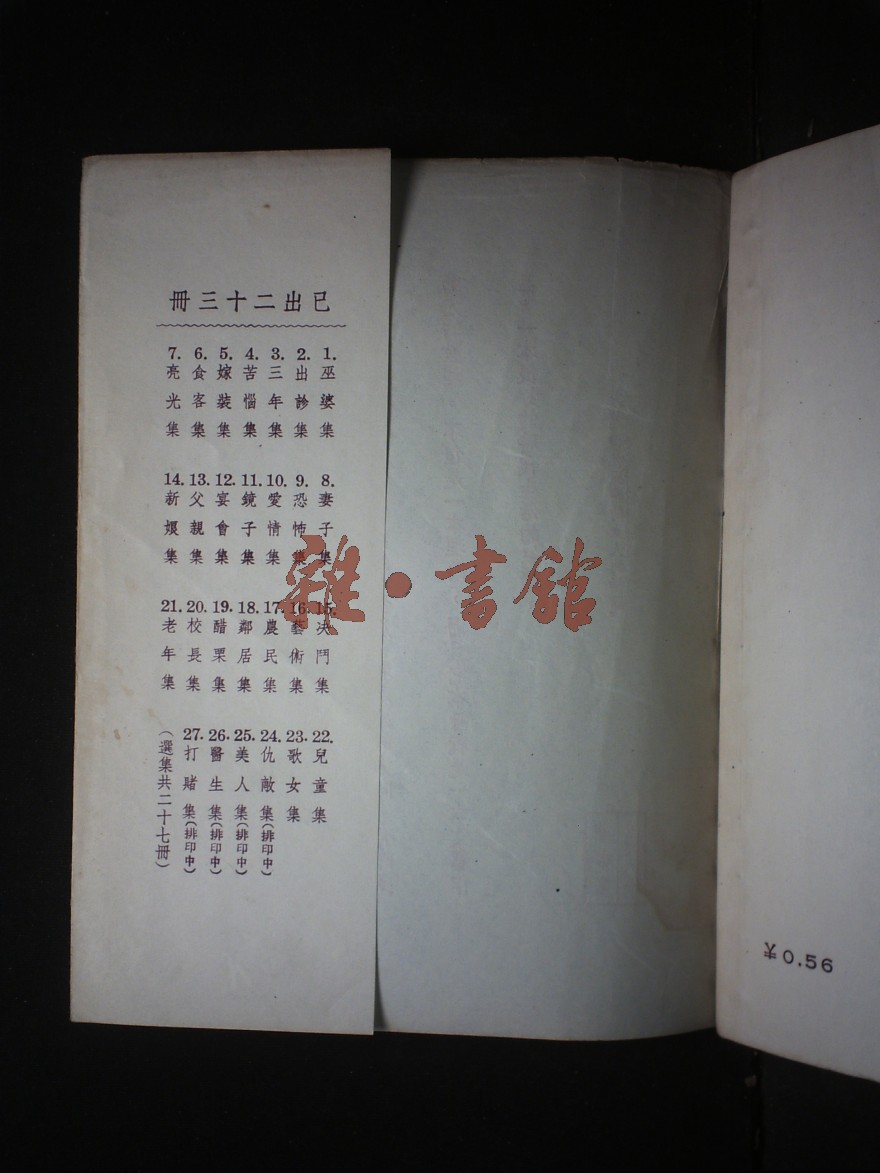 已出二十三冊
1.巫婆集
2.出診集
3.三年集
4.苦惱集
5.嫁裝集
6.食客集
7.亮光集
8.妻子集
9.恐怖集
10.愛情集
11.鏡子集
12.宴會集
13.父親集
14.新娘集
15.决鬥集
16.藝術集
17.農民集
18.鄰居集
19.醋栗集
20.校長集
21.老年集
22.兒童集
23.歌女集
24.仇敵集(排印中)
25.美人集(排印中)
26.醫生集(排印中)
27.打賭集(排印中)
(選集共二十七冊)
雜·書館
¥0.56